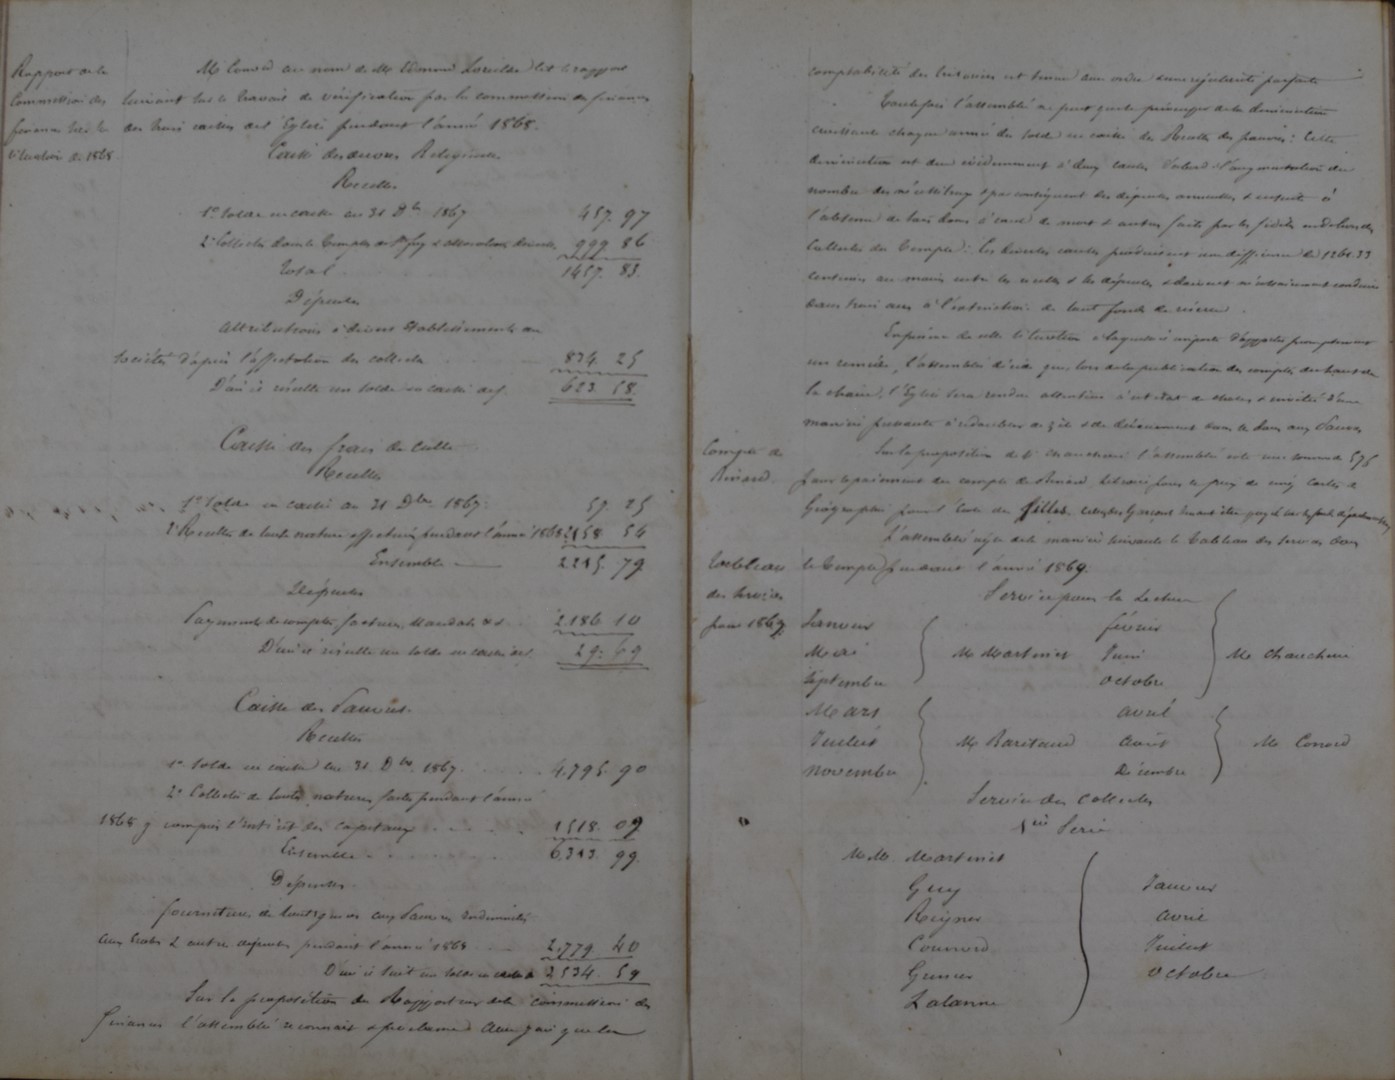 Rapport de la
Commission des
finances sur la
situation de 1868
Mr Conord au nom de Mr Edmond lit le rapport
suivant sur le travail de vérification par la commission des finances
des trois caisses de l'Eglise pendant l'année 1868.
Caisse des œuvres Religieuses
Recettes
1º Solde en caisse au 31 Dbre 1867 457. 97
2º Collectes dans le Temple de 999 86
Total 1457. 83.
Dépenses
Attributions à divers Etablissements ou
Sociétés d'après l'affectation des collectes 834. 25
D'où il résulte un solde en caisse de f 623. 58.
Caisse des frais du Culte
Recettes
1º Solde en caisse au 31 Dbre 1867. 57. 25
2º Recettes de toute nature effectuées pendant l'année 1868 2158 54
Ensemble 2215. 79
Dépenses
Payements de comptes, factures, Mandats &a 2.186 10
D'où il résulte un solde en caisse de f 29. 69
Caisse des Pauvres.
Recettes
1º Solde en caisse au 31 Dbre 1867. 4.795. 90
2º Collectes de toutes natures faites pendant l'année
1868 y compris l'intérêt des capitaux 1518. 09
Ensemble 6.313. 99.
Dépenses.
fournitures de tout genre aux Pauvres indemnités
aux Ecoles & autres dépenses pendant l'année 1868 2.779. 40
D'où il suit un solde en caisse de 3534. 59
Sur la proposition du Rapporteur de la commission des
finances l'assemblée reconnait & proclame que la
comptabilité des trésoriers est tenue avec ordre & une régularité parfaite
Toutefois l'assemblée ne peut que se préoccuper de la diminution
croissante chaque année du solde en caisse des Recettes des pauvres: Cette
diminution est due évidemment à deux causes. D'abord à l'augmentation du
nombre des nécessiteux & par conséquent des dépenses annuelles & ensuite à
l'absence de tous dons à cause de mort & autres faits par les fidèles en dehors des
Collectes du Temple: Les diverses causes produisent une différence de 1261.33
centimes au moins entre les recettes & les dépenses & doivent nécessairement conduire
dans trois ans à l'extinction de tout fonds de réserve.
En présence de cette situation à laquelle il importe d'apporter promptement
un remède, l'assemblée décide que, lors de la publication des comptes du haut de
la chaire, l'Eglise sera rendue attentive à cet état de choses & invitée d'une
manière pressante à redoubler de zèle & de dévouement dans les dons aux Pauvres
Compte de
Renard.
Sur la proposition de Mr Chaucherie l'assemblée vote une somme de 575
pour le paiement du compte de Renard, Libraire, pour le prix de cinq cartes de
Géographie pour l'école des filles.
Tableau
des services
pour 1869.
L'assemblée règle de la manière suivante le Tableau des Services dans
le Temple pendant l'année 1869.
Service pour la Lecture
Janvier
Mai
Septembre
Mr Martinet
février
Juin
octobre
Mr Chaucherie
Mars
Juillet
novembre
Mr Baritaud
avril
août
Décembre
Mr Conord
Service des Collectes
1ere Serie
M.M. Martinet
Guy
Reigner
Connord
Grenier
Lalanne
Janvier
avril
Juillet
octobre